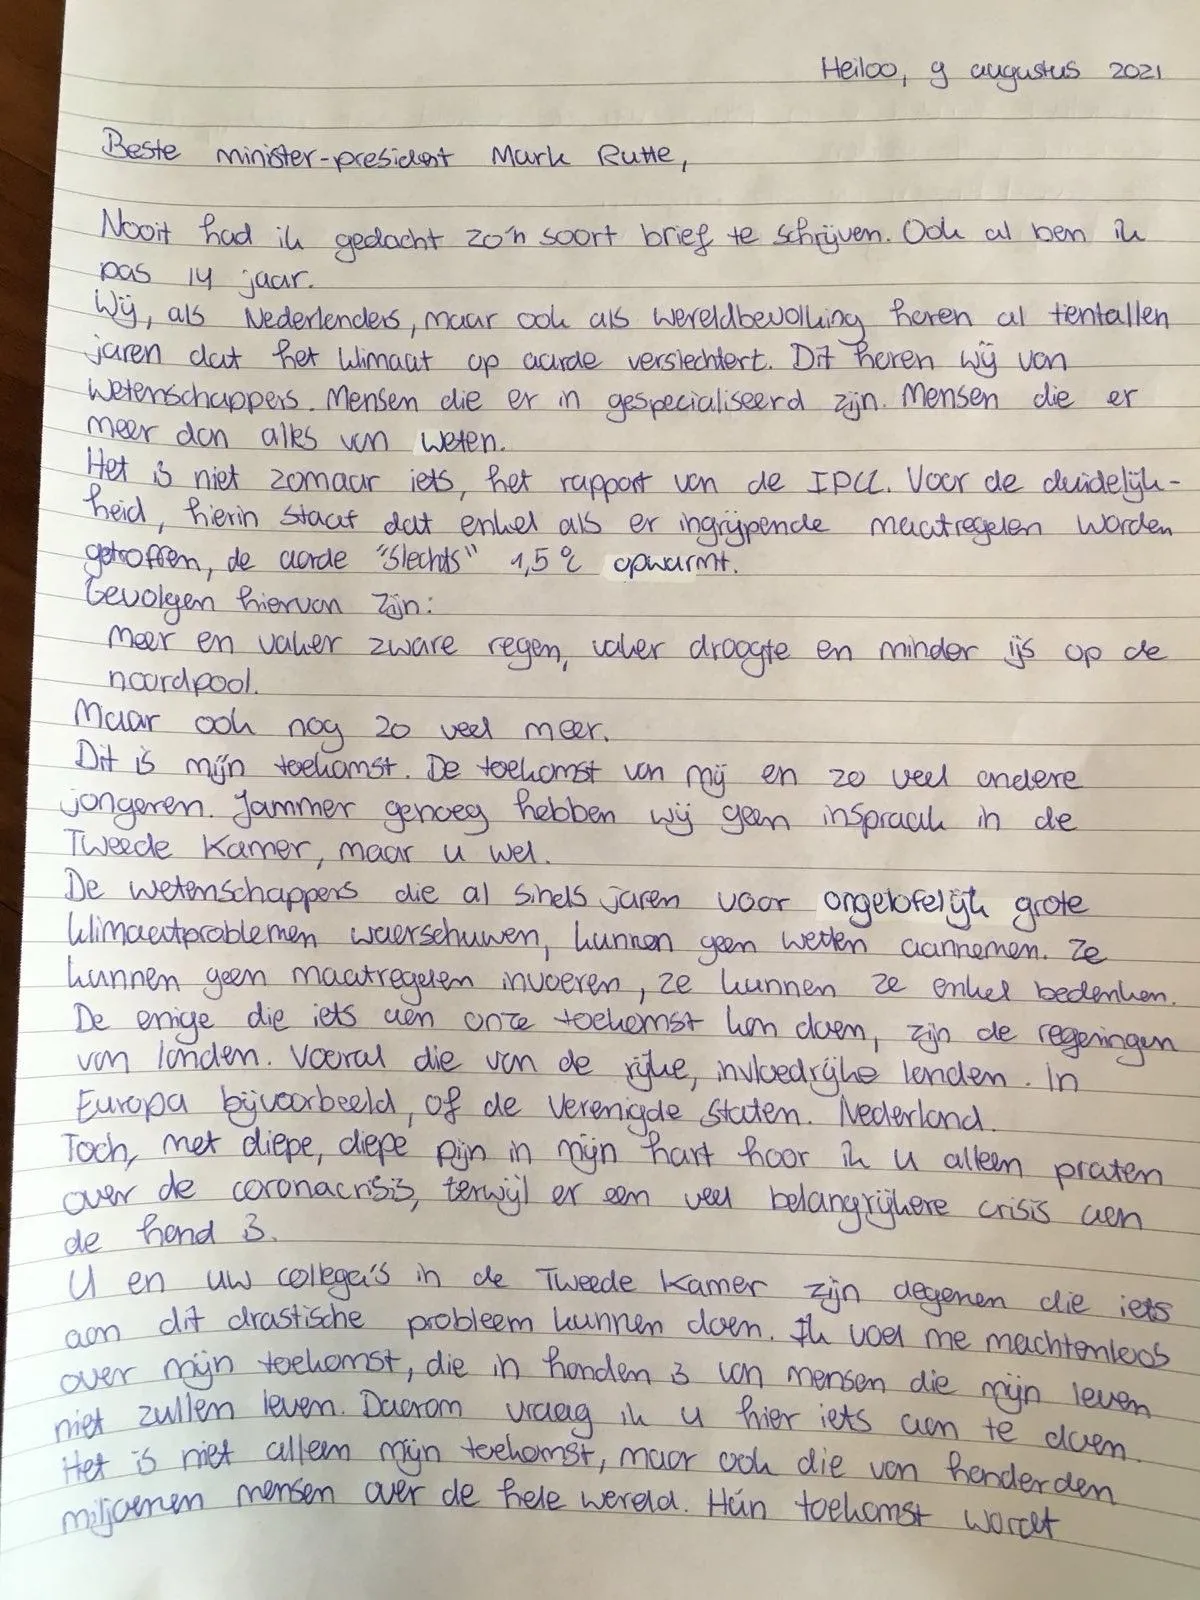 Heiloo, 9 augustus 2021
Beste minister-president Mark Rutte,
Nooit had ik gedacht zo'n soort brief te schrijven. Ook al ben ik
pas 14 jaar.
Wij, als Nederlanders, maar ook als wereldbevolking horen al tientallen
jaren dat het klimaat op aarde verslechtert. Dit horen wij van
wetenschappers. Mensen die er in gespecialiseerd zijn. Mensen die er
meer dan alles van weten.
Het is niet zomaar iets, het rapport van de IPCC. Voor de duidelijk-
heid, hierin staat dat enkel als er ingrijpende maatregelen worden
getroffen, de aarde "slechts" 1,5 °C opwarmt.
Gevolgen hiervan zijn:
Meer en vaker zware regen, vaker droogte en minder ijs op de
noordpool.
Maar ook nog zo veel meer.
Dit is mijn toekomst. De toekomst van mij en zo veel andere
jongeren. Jammer genoeg hebben wij geen inspraak in de
Tweede Kamer, maar u wel.
De wetenschappers die al sinds jaren voor ongelofelijk grote
klimaatproblemen waarschuwen, kunnen geen wetten aannemen. Ze
kunnen geen maatregelen invoeren, ze kunnen ze enkel bedenken.
De enige die iets aan onze toekomst kan doen, zijn de regeringen
van landen. Vooral die van de rijke, invloedrijke landen. In
Europa bijvoorbeeld, of de Verenigde Staten. Nederland.
Toch, met diepe, diepe pijn in mijn hart hoor ik u alleen praten
over de coronacrisis, terwijl er een veel belangrijkere crisis aan
de hand is.
U en uw collega's in de Tweede Kamer zijn degenen die iets
aan dit drastische probleem kunnen doen. Ik voel me machtenloos
over mijn toekomst, die in handen is van mensen die mijn leven
niet zullen leven. Daarom vraag ik u hier iets aan te doen.
Het is niet alleen mijn toekomst, maar ook die van honderden
miljoenen mensen over de hele wereld. Hún toekomst wordt